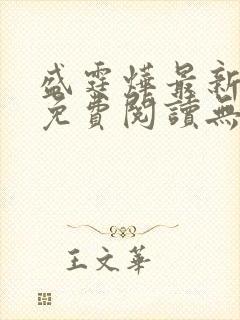 盛霆燁最新
免費閱讀無
王文華